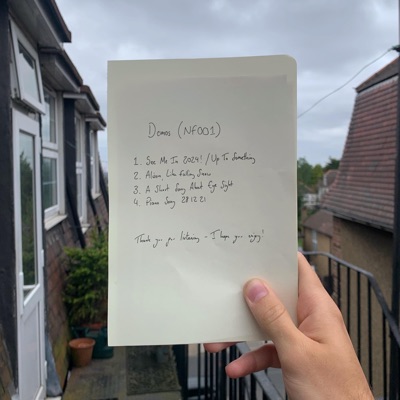 Demos (NF001)
1. See Me In 2024! / Up To Something
2. Alone, Like Falling Snow
3. A Short Song About Eye Sight
4. Piano Song 28 12 21
Thank you for listening - I hope you enjoy!